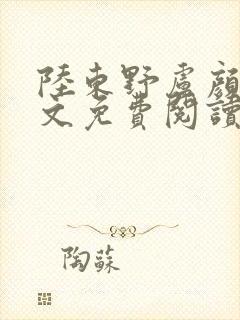 陸東野盧顏
文免費閱讀
陶蘇